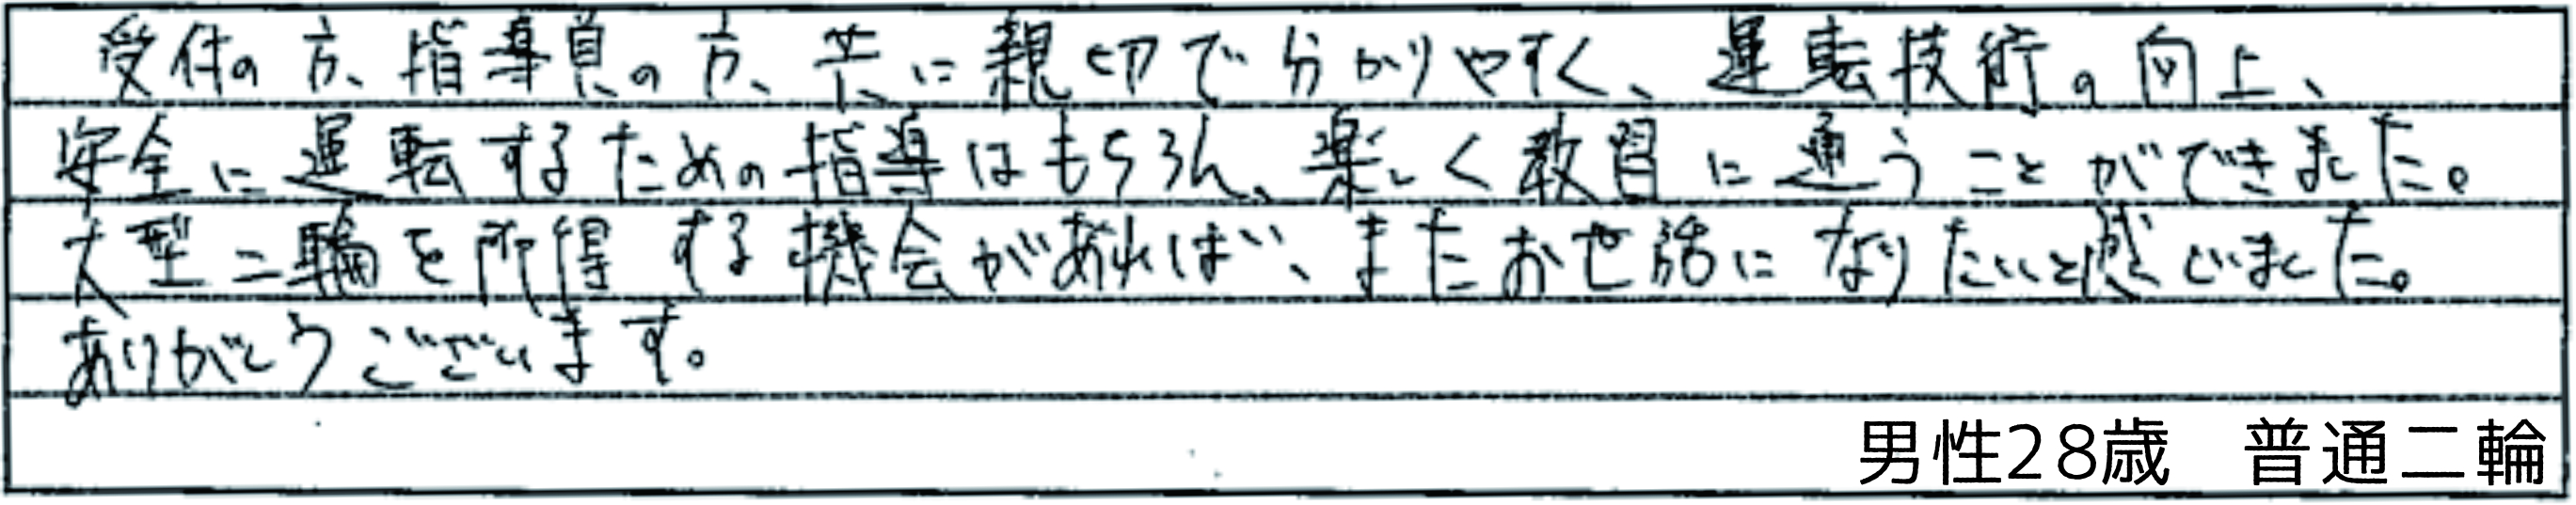 受付の方、指導員の方、共に親切で分かりやすく、運転技術の向上、
安全に運転するための指導はもちろん、楽しく教習に通うことができました。
大型二輪を所得する機会があれば、またお世話になりたいと感じました。
ありがとうございます。
男性28歳　普通二輪